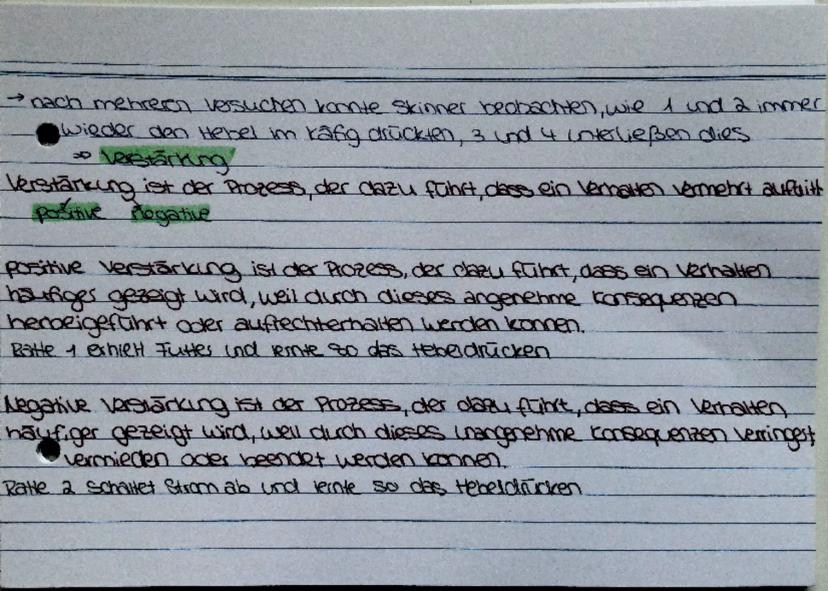 → nach mehreren Versuchen konnte Skinner beobachten, wie 1 und 2 immer
wieder den Hebel im Käfig drückten, 3 und 4 unterließen dies
⇒ Verstärkung
Verstärkung ist der Prozess, der dazu führt, dass ein Verhalten vermehrt auftritt
positive Negative
positive Verstärkung ist der Prozess, der dazu führt, dass ein Verhalten
häufiger gezeigt wird, weil durch dieses angenehme Konsequenzen
herbeigeführt oder aufrechterhalten werden können.
Ratte 1 erhielt Futter und lernte so das Hebeldrücken
Negative Verstärkung ist der Prozess, der dazu führt, dass ein Verhalten
häufiger gezeigt wird, weil durch dieses unangenehme Konsequenzen verringert
vermieden oder beendet werden können.
Ratte 2 schaltet Strom ab und lernte so das Hebeldrücken